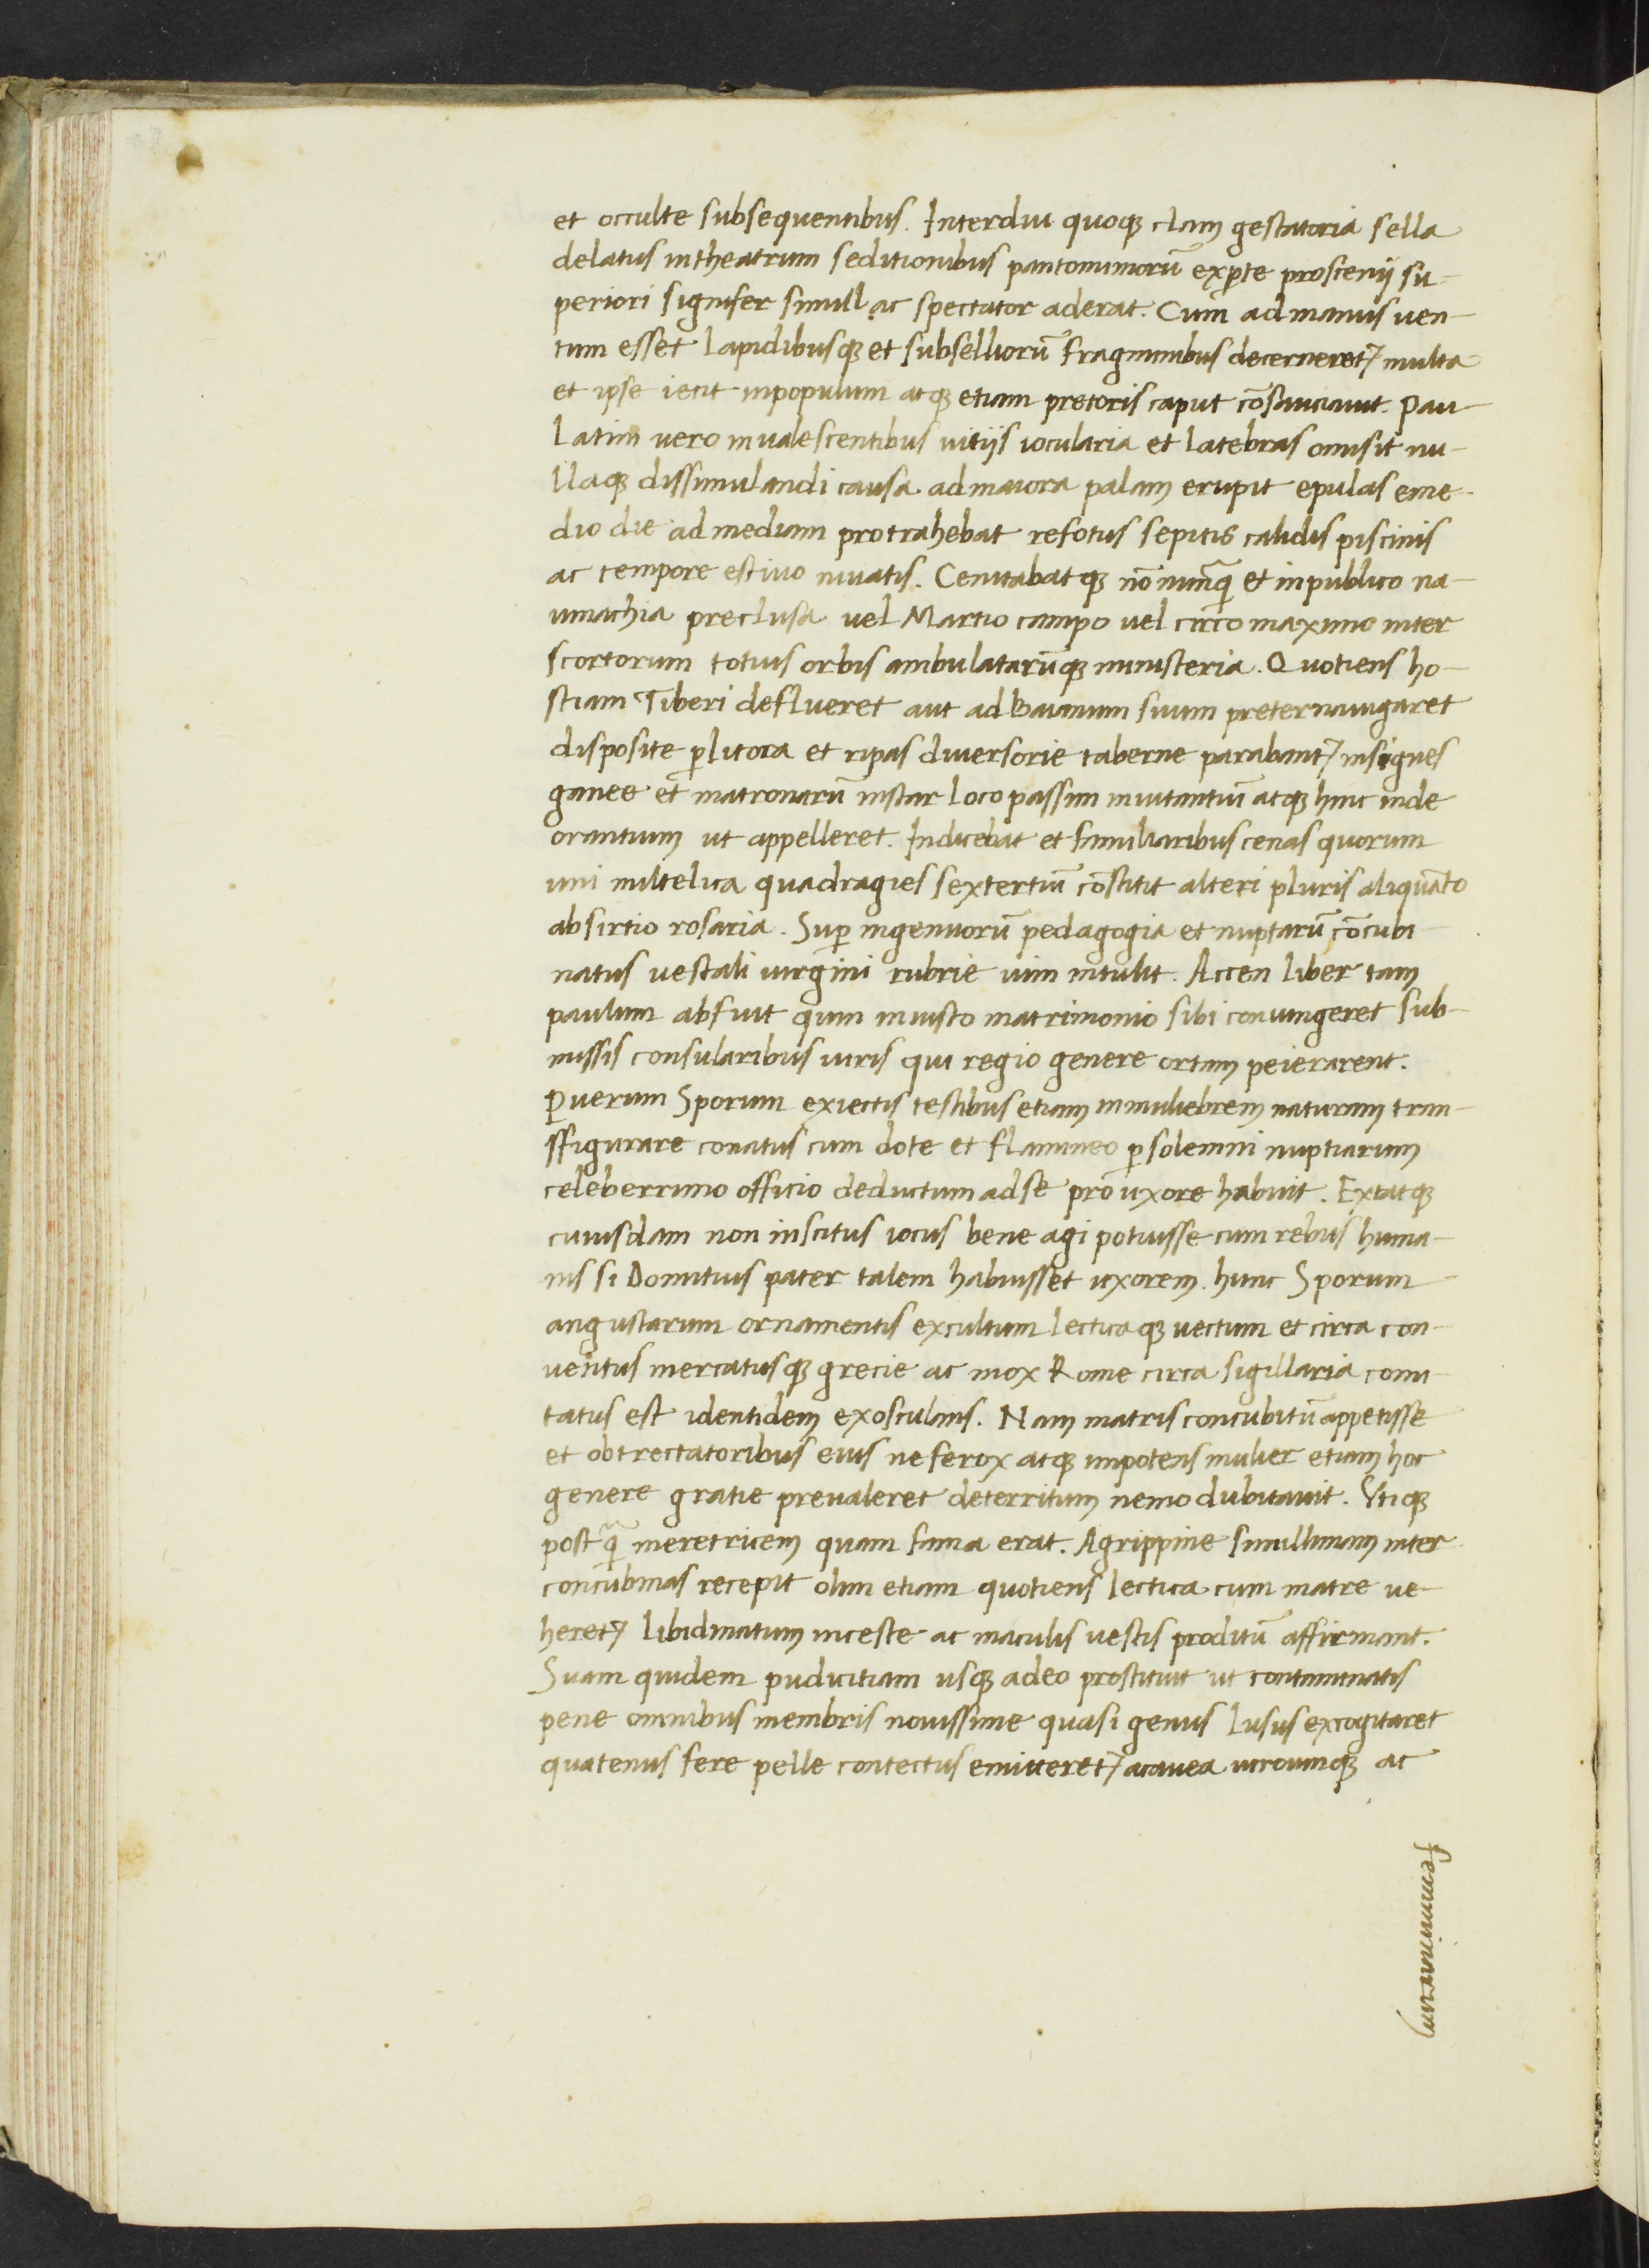 et occulte subsequentibus. Interdiu quoqꝫ clam gestatoria sella
delatus in theatrum seditionibus pantomimorū ex ꝑte proscenij su-
periori signifer simul ac spectator aderat. Cum ad manus uen-
tum esset lapidibusqꝫ et subselliorū fragminibus decerneretꝛ multa
et ipse iecit in populum atqꝫ etiam pretoris caput cōsauciauit. Pau-
latim uero inualescentibus uitijs iocularia et latebras omisit nu-
llaqꝫ dissimulandi causa ad maiora palam erupit epulas eme-
dio die ad mediam protrahebat refotus sepius calidis piscinis
ac tempore estiuo niuatis. Cenitabatqꝫ nō nunq̄ et in publico na-
umachia preclusa uel Martio campo uel circo maximo inter
scortorum totius orbis ambulatarūqꝫ ministeria. Quotiens ho-
stiam Tiberi deflueret aut ad Baianum sinum preternauigaret
disposite ꝑ litora et ripas diuersorie taberne parabantꝛ insignes
ganee et matronarū instar loco passim inuitantiū atqꝫ hinc inde
orantium ut appelleret. Indicebat et familiaribus cenas quorum
uni mitelica quadragies sextertiū cōstitit alteri pluris aliquāto
absirtio rosaria. Suꝑ ingenuorū pedagogia et nuptarū cōcubi
natus uestali uirgini rubrie uim intulit. Accen liber tam
paulum abfuit quin in iusto matrimonio sibi coniungeret sub-
missis consularibus uiris qui regio genere ortam peierarent.
Puerum Sporum exiectis testibus etiam in muliebrem naturam tran-
sfigurare conatus cum dote et flammeo ꝑ solemni nuptiarum
celeberrimo officio deductum ad se pro uxore habuit. Extatqꝫ
cuiusdam non inscitus iocus bene agi potuisse cum rebus huma-
nis si Domitius pater talem habuisset uxorem. hunc Sporum
augustarum ornamentis excultum lecticaqꝫ uectum et circa con-
uentus mercatusqꝫ grecie ac mox Rome circa sigillaria comi-
tatus est identidem exosculans. Nam matris concubitū appetisse
et obtrectatoribus eius ne ferox atqꝫ impotens mulier etiam hoc
genere gratie preualeret deterritum nemo dubitauit. Vtiqꝫ
postq̄ meretricem quam fama erat. Agrippine simillimam inter
concubinas recepit olim etiam quotiens lectica cum matre ue-
heretꝛ libidinatum inceste ac maculis uestis proditū affirmant.
Suam quidem pudicitiam usqꝫ adeo prostituit ut contaminatis
pene omnibus membris nouissime quasi genus lusus excogitaret
quatenus fere pelle contectus emitteretꝛ acauea utroumqꝫ ac
femminarum